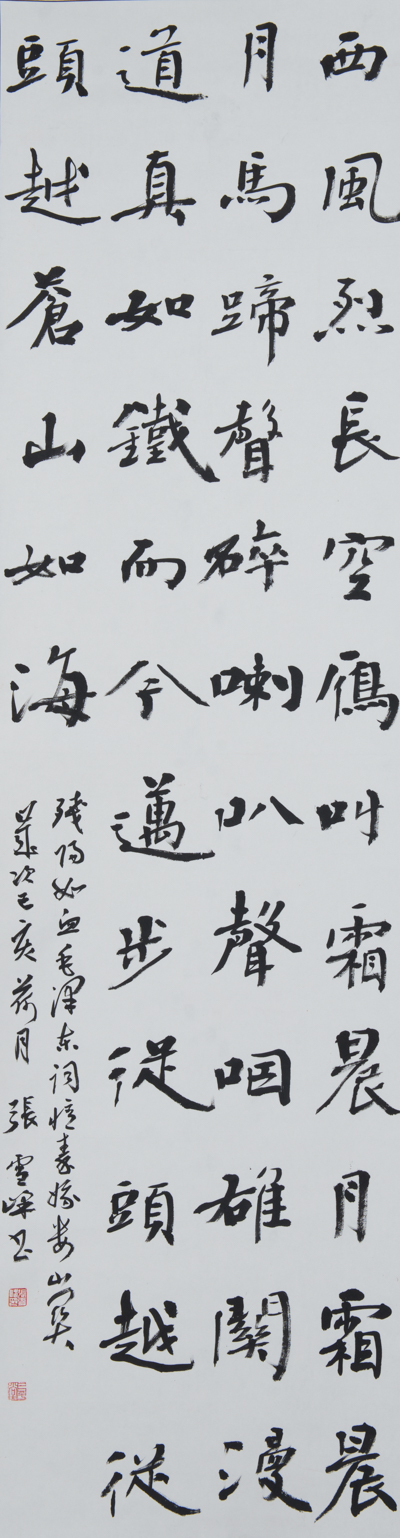 西風烈長空鴈叫霜晨月霜晨
月馬蹄聲碎喇叭聲咽雄關漫
道真如鐵而今邁步從頭越從
頭越蒼山如海
殘陽如血毛澤東詞憶秦娥婁山关
歲次己亥荷月 張雪书